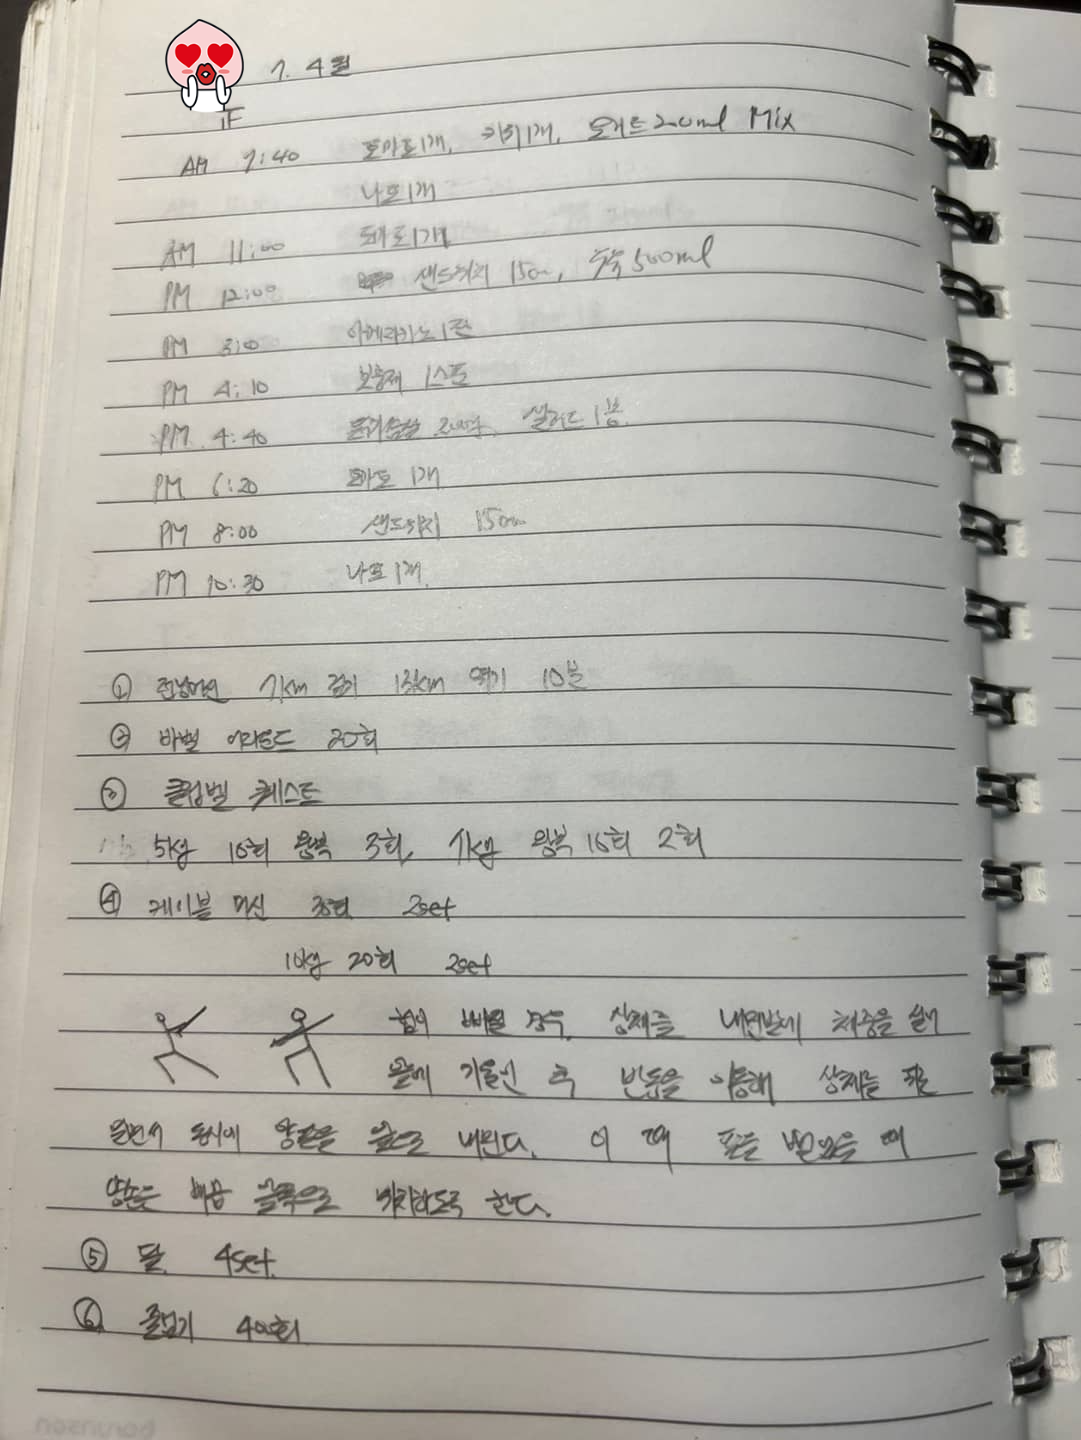 7. 4월
iF
AM 7:40 토마토1개, 키위1개, 요거트200ml Mix
나또1개
AM 11:00 토마토1개
PM 12:00 샌드위치 15cm, 두유500ml
PM 3:00 아메리카노1잔
PM 4:10 보충제 1스푼
PM 4:40 닭가슴살 샐러드1봉
PM 6:20 토마토 1개
PM 8:00 샌드위치 15cm
PM 10:30 나또1개.
① 런닝머신 7km 걷기 13km 뛰기 10분
② 바벨 어라운드 20회
③ 클럽벨 퀘스트
5kg 16회 왕복 3회, 7kg 왕복 16회 2회
④ 케이블 머신 30회 2set
10kg 20회 2set
힘이 빠질 경우, 상체를 내민발에 체중을 실어
앞에 기울인 후 반동을 이용해 상체를 펴
올면서 동시에 양손을 앞으로 내민다. 이 때 팔을 뻗었을 때
양손은 배꼽 앞쪽으로 위치하도록 한다.
⑤ 4set.
⑥ 줄넘기 400회